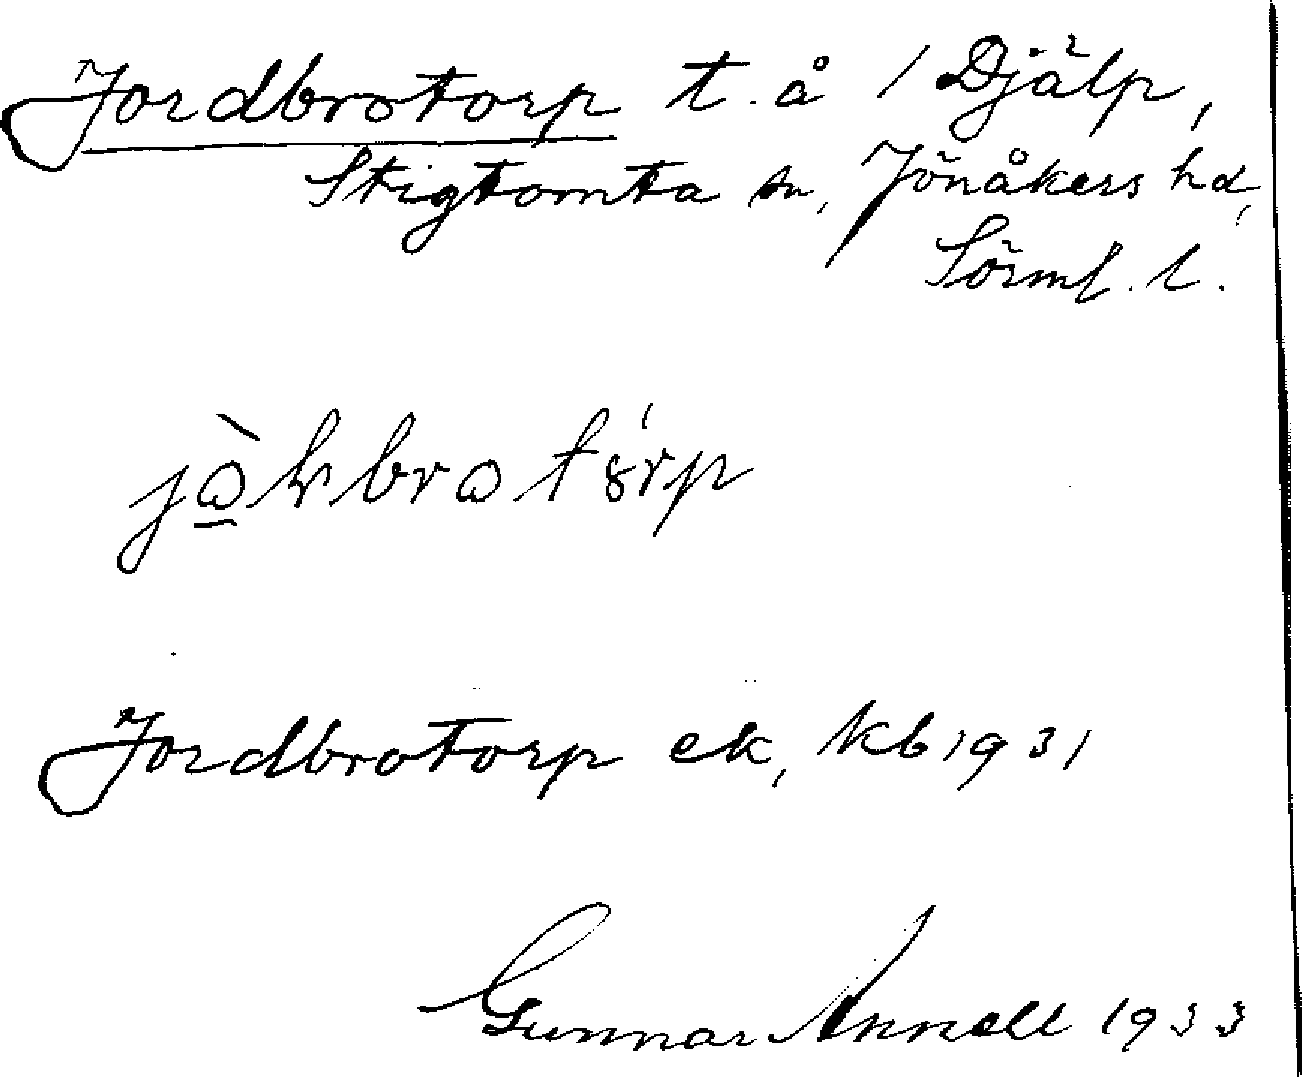 Jordbrotorp t. å / Djälp,
Stigtomta sn, Jönåkers hd,
Sörml. l.
Jordbrotorp ek, kb 1931
Gunnar Annell 1933